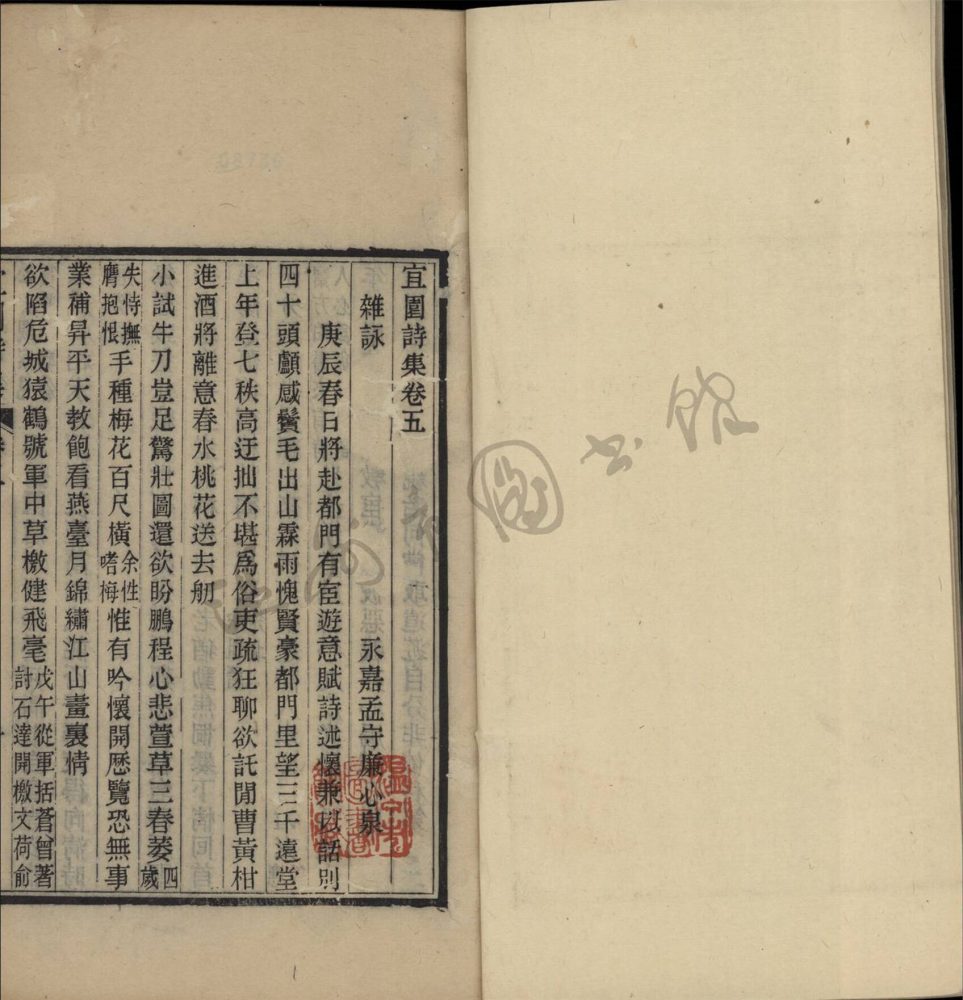 宜園詩集卷五
雜詠
永嘉孟守廉心泉
庚辰春日將赴都門有宦遊意賦詩述懷兼以話別
四十頭顱感鬢毛出山霖雨愧賢豪都門里望三千遠堂
上年登七秩高迂拙不堪爲俗吏疏狂聊欲託閒曹黃柑
進酒將離意春水桃花送去舠
小試牛刀豈足驚壯圖還欲盼鵬程心悲萱草三春萎四歲
失恃撫膺抱恨手種梅花百尺橫余性嗜梅惟有吟懷開歷覽恐無事
業補昇平天教飽看燕臺月錦繡江山畫裏情
欲陷危城猿鶴號軍中草檄健飛毫戊午從軍括蒼曾著討石達開檄文荷俞
圖書館